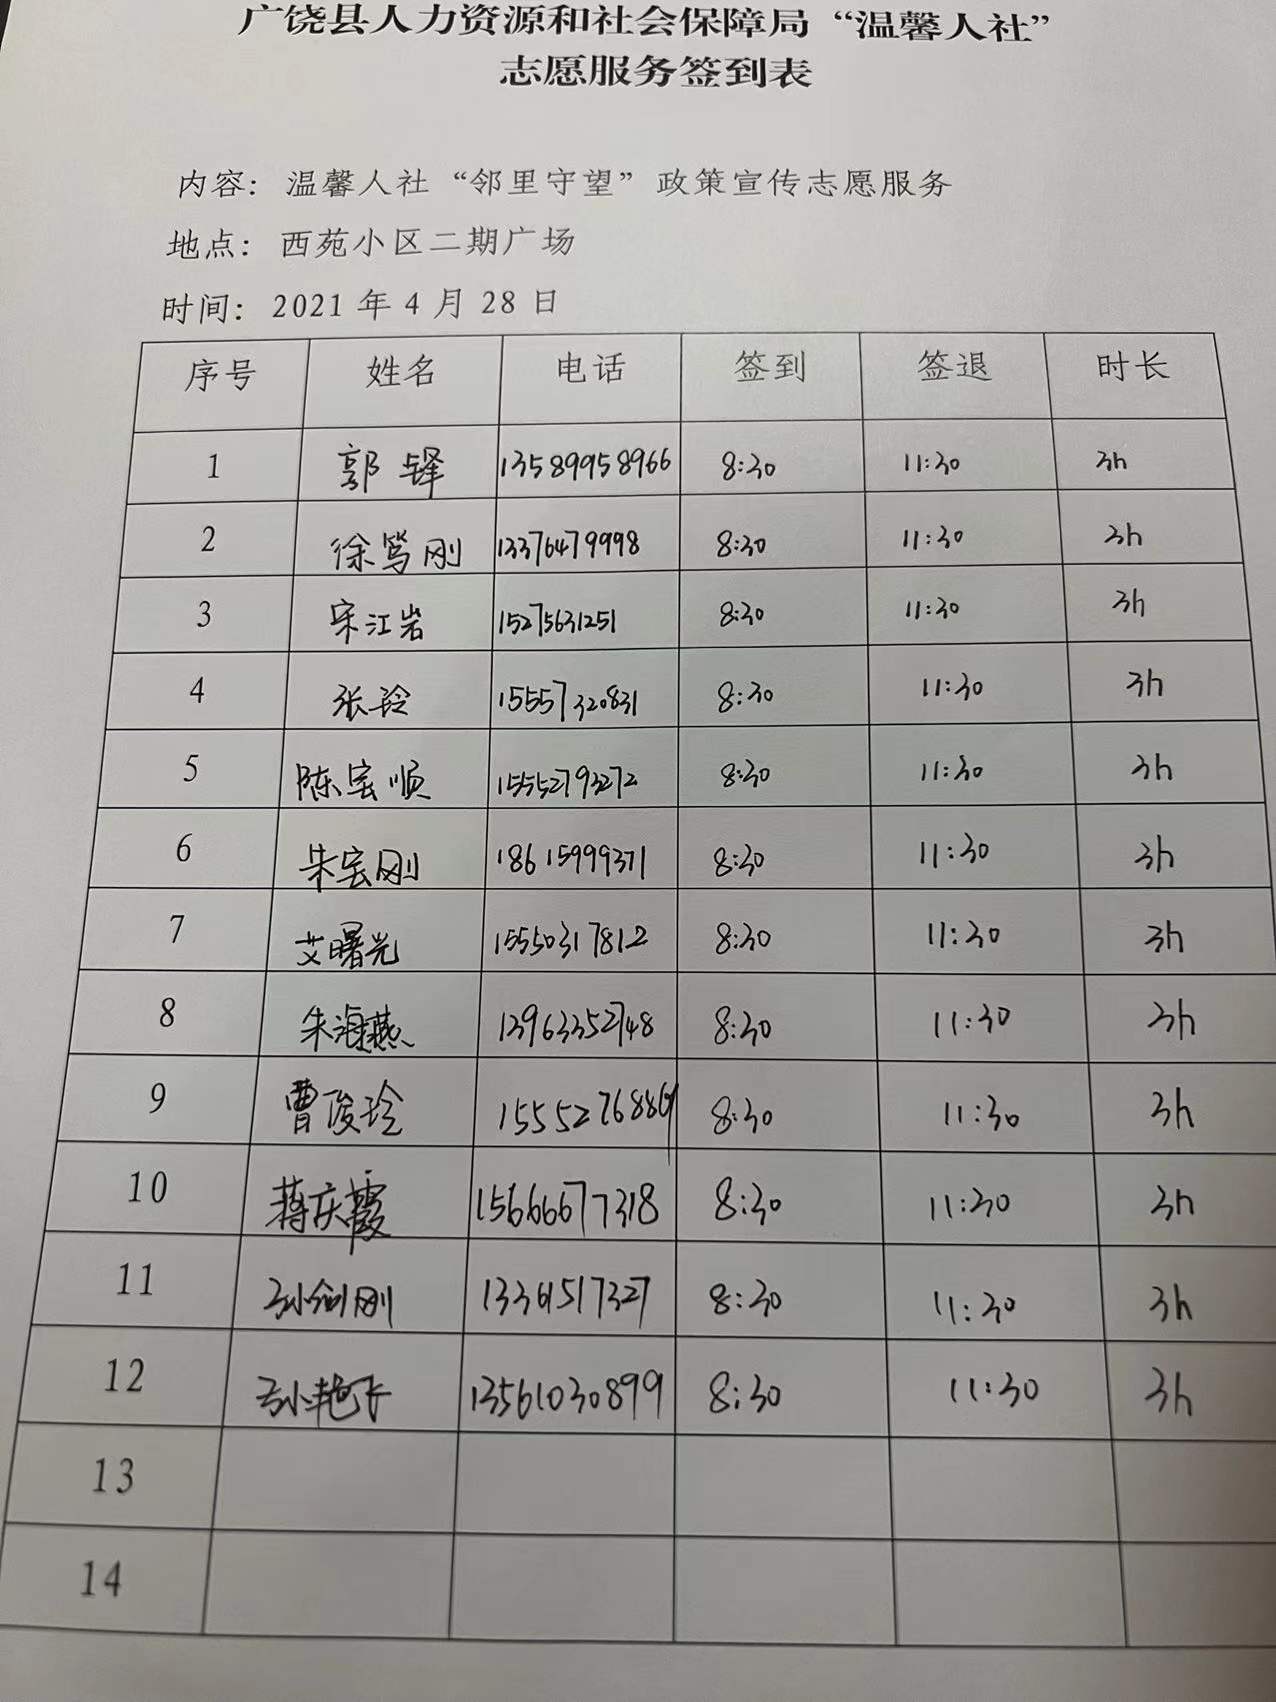 广饶县人力资源和社会保障局“温馨人社”
志愿服务签到表
内容：温馨人社“邻里守望”政策宣传志愿服务
地点：西苑小区二期广场
时间：2021年4月28日
序号 姓名 电话 签到 签退 时长
1 郭铎 13589958966 8:30 11:30 3h
2 徐笃刚 13376479998 8:30 11:30 3h
3 宋江岩 15275631251 8:30 11:30 3h
4 张玲 15557320831 8:30 11:30 3h
5 陈宝顺 15552793272 8:30 11:30 3h
6 朱宏刚 18615999371 8:30 11:30 3h
7 艾曙光 15550317812 8:30 11:30 3h
8 朱海燕 13963352748 8:30 11:30 3h
9 曹俊玲 8:30 11:30 3h
10 蒋庆霞 15666677318 8:30 11:30 3h
11 孙剑刚 13361517327 8:30 11:30 3h
12 孙艳飞 13561030899 8:30 11:30 3h
13
14